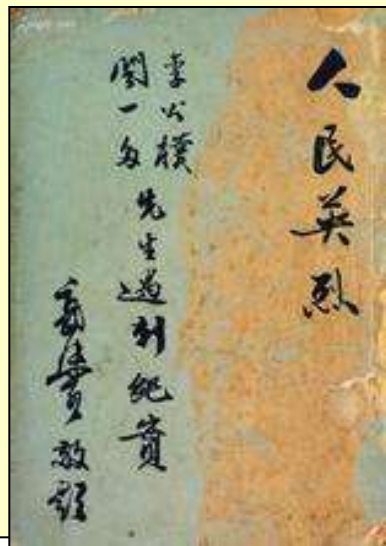 人民英烈
李公樸
聞一多
先生遇刺紀實
敬題